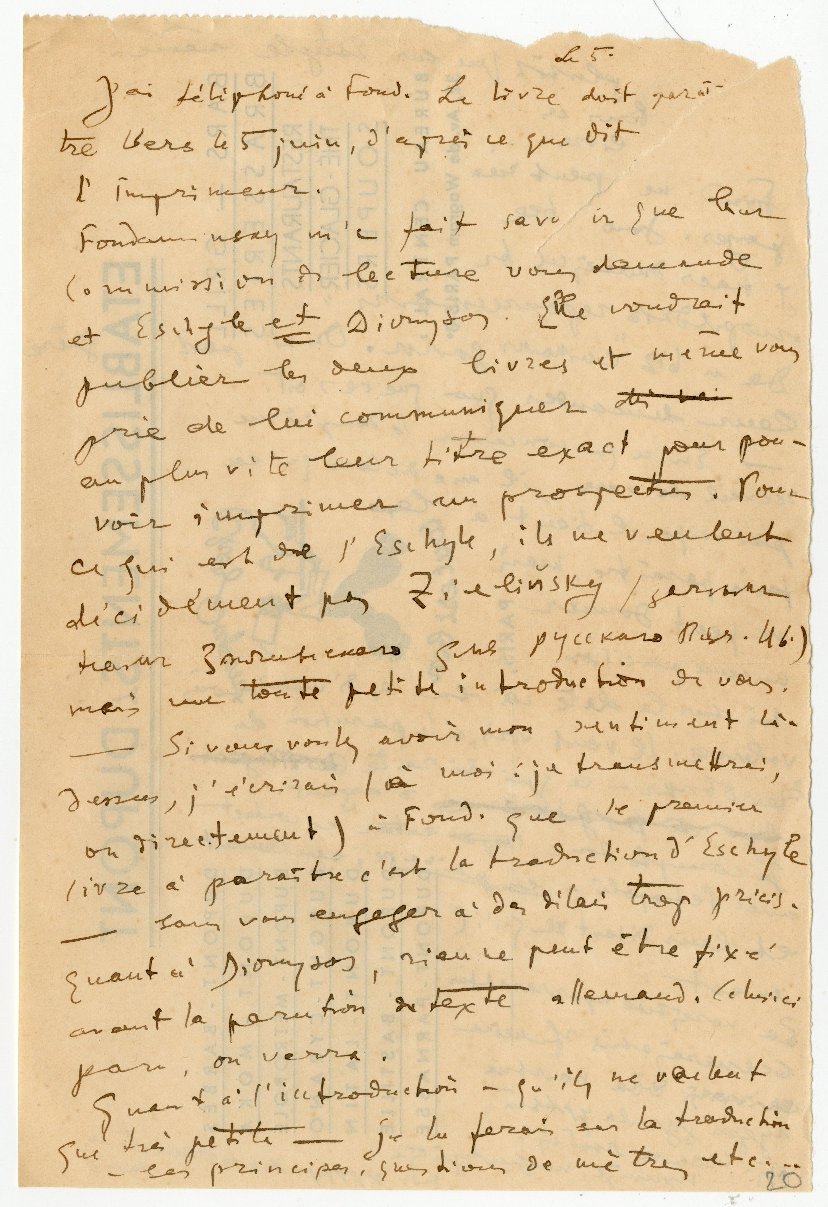 Le 5.
J'ai téléphoné à Fond. Le livre doit paraî-
tre vers le 5 juin, d'après ce que dit
l'imprimeur.
Fondaminsky m'a fait savoir que leur
Commission de lecture vous demande
et Eschyle et Dionysos. Elle voudrait
publier les deux livres et même vous
prie de lui communiquer
au plus vite leur titre exact pour pou-
voir imprimer un prospectus. Pour
ce qui est de l'Eschyle, ils ne veulent
décidément pas Zieliñsky /
для русскаго
mais une toute petite introduction de vous.
— Si vous voulez avoir mon sentiment là-
dessus, j'écrirais (à moi : je transmettrai,
ou directement) à Fond. que le premier
livre à paraître c'est la traduction d'Eschyle
— sans vous engager à des délais trop précis.
Quant à Dionysos, rien ne peut être fixé
avant la parution du texte allemand. Celui-ci
paru, on verra.
Quant à l'introduction – qu'ils ne veulent
que très petite — je la ferais sur la traduction
– ses principes, questions de mètres, etc...
20